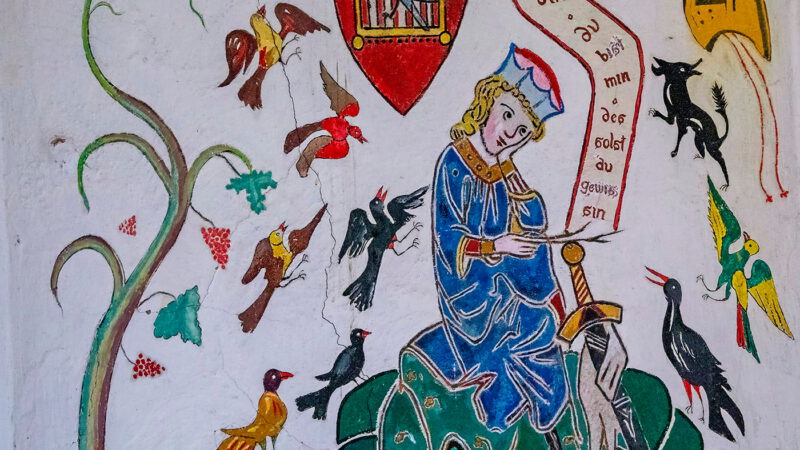 du
bist
min
des
solst
du
gewis
sin